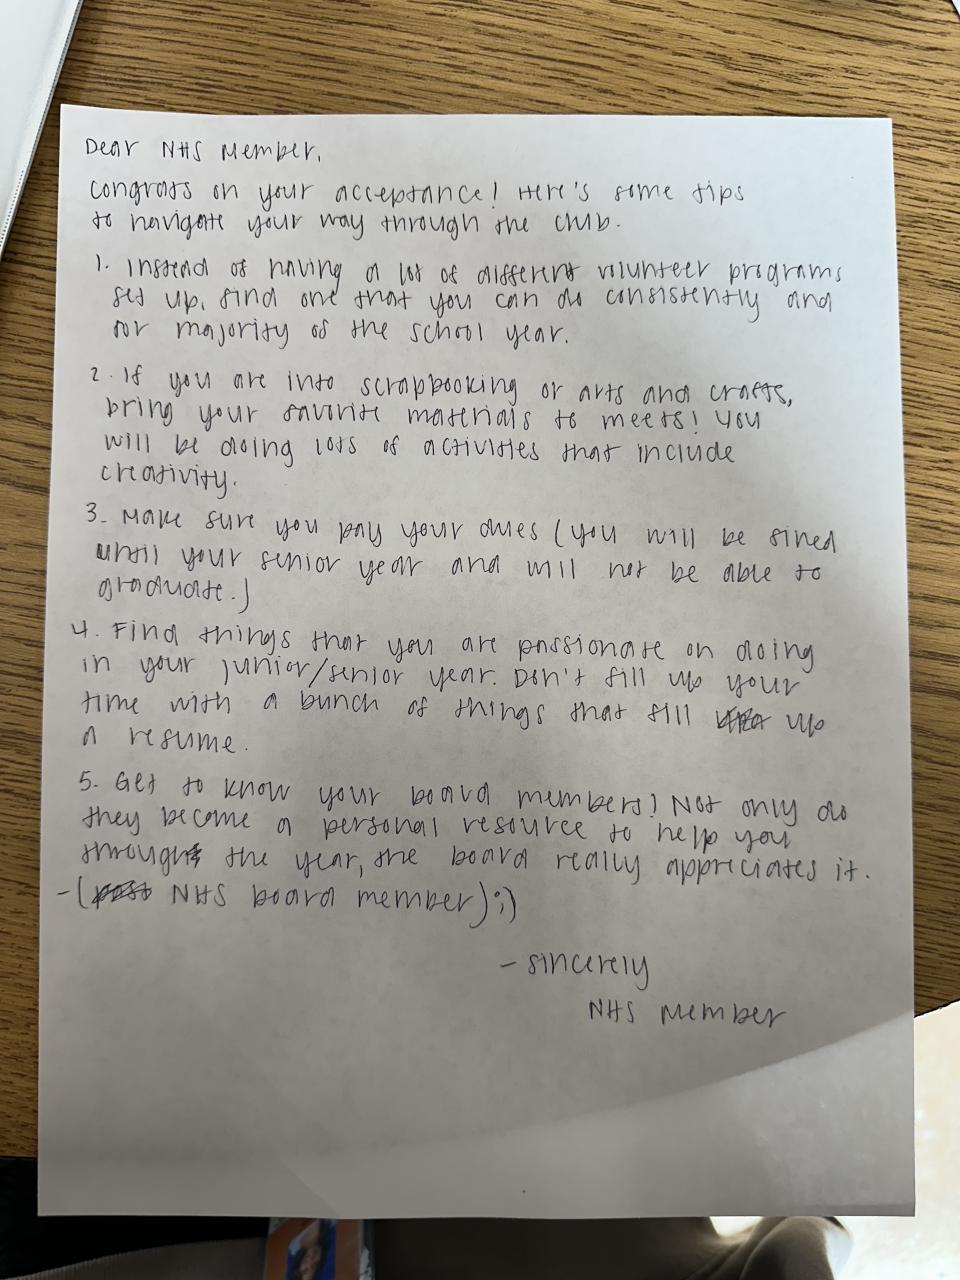 Dear NHS Member,
Congrats on your acceptance! Here's some tips
to navigate your way through the club.
1. Instead of having a lot of different volunteer programs
set up, find one that you can do consistently and
for majority of the school year.
2. If you are into scrapbooking or arts and crafts,
bring your favorite materials to meets! You
will be doing lots of activities that include
creativity.
3. Make sure you pay your dues (you will be fined
until your senior year and will not be able to
graduate.)
4. Find things that you are passionate on doing
in your junior/senior year. Don't fill up your
time with a bunch of things that fill up
a resume.
5. Get to know your board members! Not only do
they become a personal resource to help you
through the year, the board really appreciates it.
-(past NHS board member) ;)
- sincerely
NHS Member